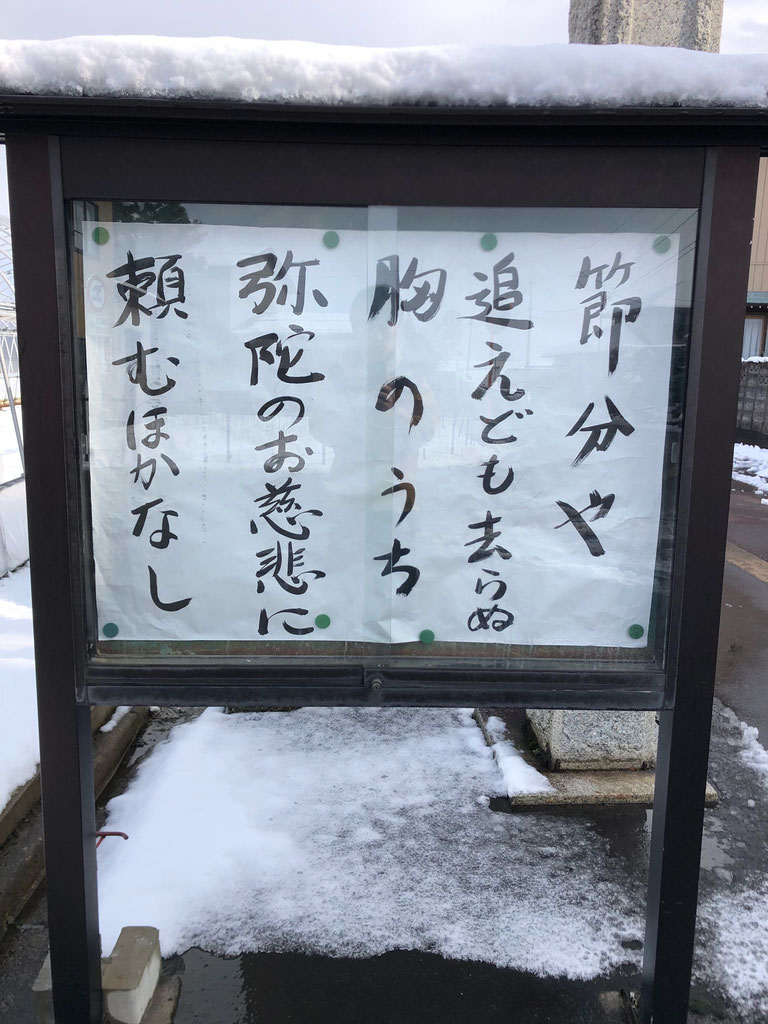 節分や
追えども去らぬ
胸のうち
弥陀のお慈悲に
頼むほかなし